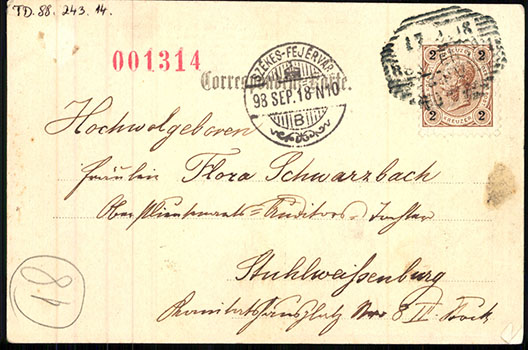 TD. 88. 243. 14.
001314
Correspondenz-Karte.
SZÉKES-FEJÉRVÁR
98 SEP. 18 N 10
B
2 2
2 KREUZER 2
Hochwolgeboren
Fräulein Flora Schwarzbach
Oberstlieutenants-Auditors-Tochter
Stuhlweissenburg
Komitatshausplatz Nro 8 II. Stock
48